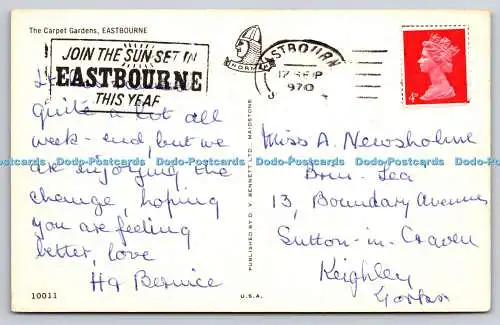 The Carpet Gardens, EASTBOURNE
JOIN THE SUN SET IN
EASTBOURNE
THIS YEAR
EASTBOURNE
17 SEP
1970
4D
quite a lot all
week-end, but we
are enjoying the
change, hoping
you are feeling
better, love
Bernice
10011
PUBLISHED BY D. V. BENNETT LTD. MAIDSTONE
U.S.A.
Miss A. Newsholme
13, Boundary Avenue
Sutton-in-Craven
Keighley
Dodo-Postcards Dodo-Postcards Dodo-Postcards Dodo-Postcards Dodo-Postcards